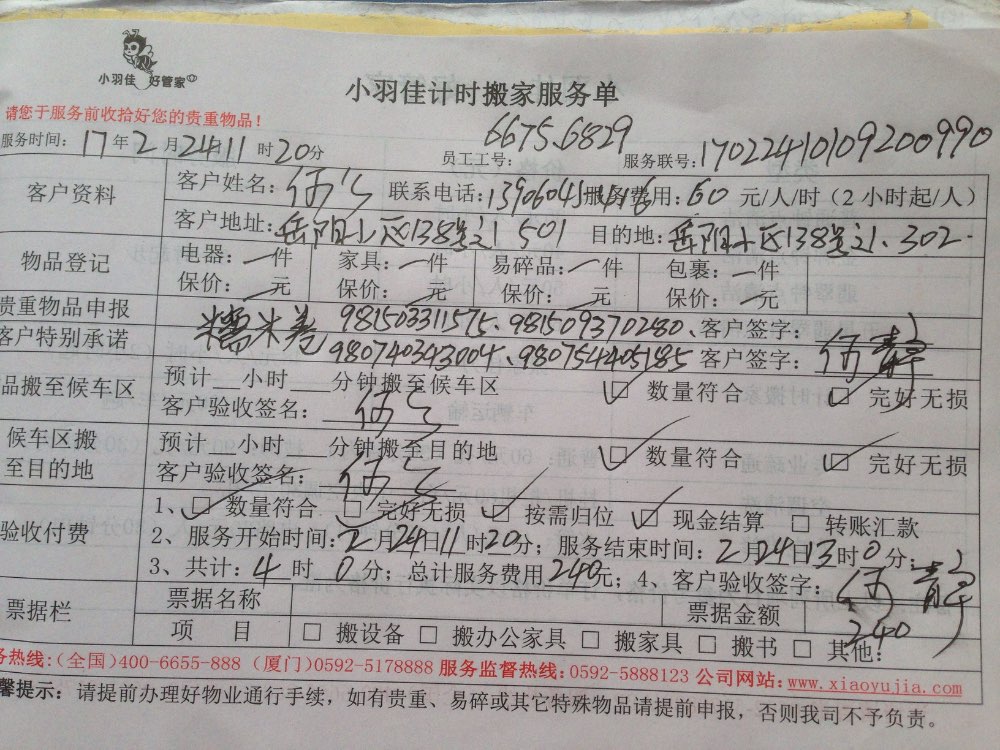 小羽佳 好管家
小羽佳计时搬家服务单
请您于服务前收拾好您的贵重物品！
6675.6829
服务时间：17年2月24日11时20分 员工工号： 服务联号：17022410109200990
客户资料 客户姓名： 联系电话：13906045 服务费用：60元/人/时（2小时起/人）
客户地址：岳阳小区138号之1 501 目的地：岳阳小区138号之1.302.
物品登记 电器：一件 家具：一件 易碎品：一件 包裹：一件
保价：一元 保价：一元 保价：一元 保价：一元
贵重物品申报 糯米卷 981503311575、981509370280、客户签字：
客户特别承诺 980740343004、980754405185 客户签字：何静
品搬至候车区 预计__小时__分钟搬至候车区 ☑ 数量符合 ☑ 完好无损
客户验收签名：
候车区搬 预计__小时__分钟搬至目的地 ☑ 数量符合 ☑ 完好无损
至目的地 客户验收签名：
1、☑ 数量符合 ☑ 完好无损 ☑ 按需归位 ☑ 现金结算 □ 转账汇款
验收付费 2、服务开始时间：2月24日11时20分；服务结束时间：2月24日13时0分；
3、共计：4时0分；总计服务费用240元；4、客户验收签字：何静
票据栏 票据名称 票据金额 240
项 目 □ 搬设备 □ 搬办公家具 □ 搬家具 □ 搬书 □ 其他：
务热线：(全国)400-6655-888 (厦门)0592-5178888 服务监督热线：0592-5888123 公司网站：www.xiaoyujia.com
馨提示：请提前办理好物业通行手续，如有贵重、易碎或其它特殊物品请提前申报，否则我司不予负责。